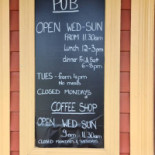 PUB
OPEN WED-SUN
FROM 11:30am
Lunch 12-3pm
dinner Fri & Sat
6-8pm
TUES - 6pm 9pm
No meals
CLOSED MONDAYS
COFFEE SHOP
OPEN WED-SUN
9am 11:30am
CLOSED MONDAYS & TUESDAYS